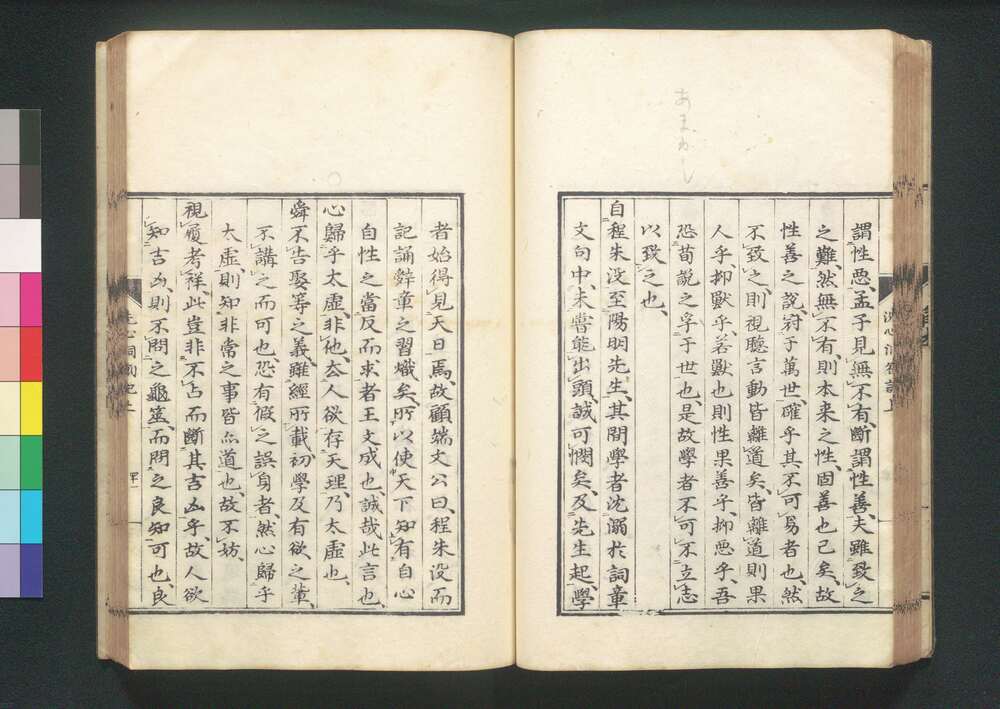 あまねし
謂性惡、孟子見無不有、斷謂性善、夫雖致之
之難、然無不有、則本來之性、固善也已矣、故
性善之說、符于萬世、確乎其不可易者也、然
不致之、則視聽言動皆離道矣、皆離道則果
人乎、抑獸乎、若獸也則性果善乎、抑惡乎、吾
恐荀說之孚于世也、是故學者不可不立志
以致之也、
自程朱沒至陽明先生、其間學者沈溺於詞章
文句中、未嘗能出頭、誠可憫矣、及先生起、學
者始得見天日焉、故顧端文公曰、程朱沒而
記誦辭章之習熾矣、所以使天下知有自心
自性之當反而求者王文成也、誠哉此言也、
心歸乎太虛、非他、去人欲存天理、乃太虛也、
舜不告娶等之義、雖經所載、初學及有欲之輩、
不講之而可也、恐有假之誤身者、然心歸乎
太虛、則知非常之事皆亦道也、故不妨、
視履考祥、此豈非不占而斷其吉凶乎、故人欲
知吉凶、則不問之龜筮、而問之良知可也、良
洗心洞劄記上